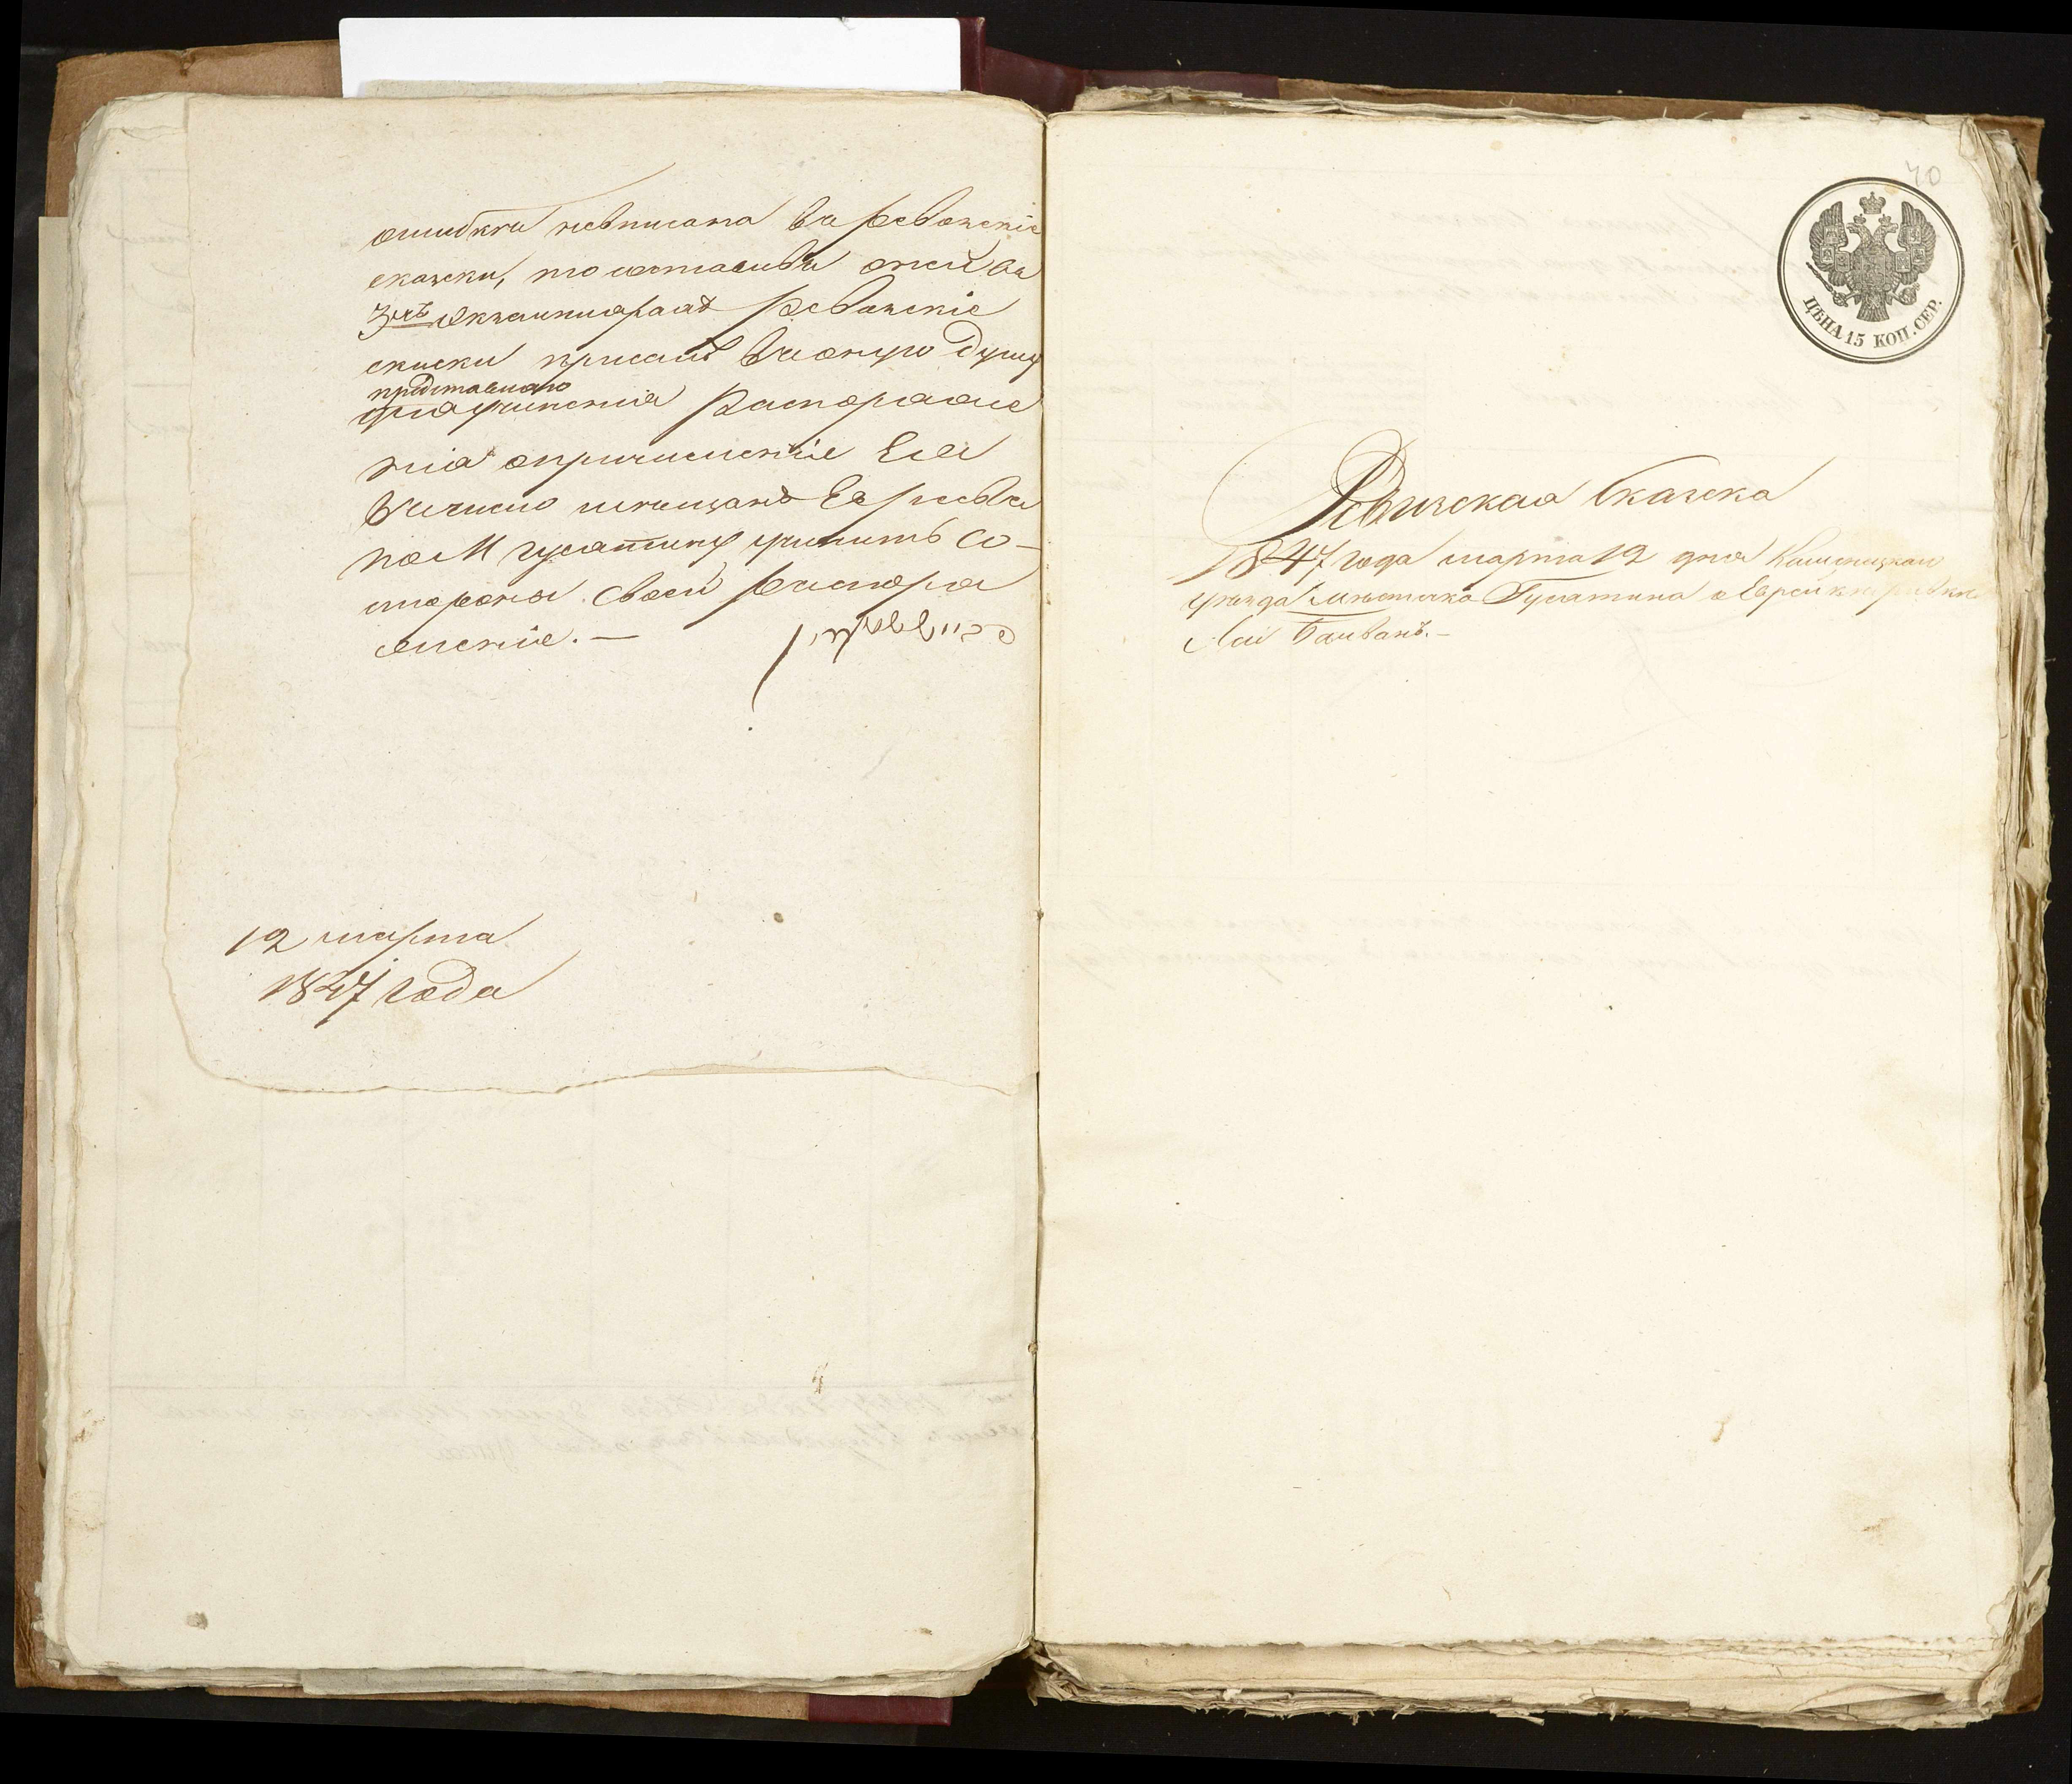 ошибки невписана въ ревизскіе
сказски, то составивъ оной въ
3хъ экземпляраѣ ревизскіе
скаски при семъ въ оную думу
представляю
учиненія распоряже
нія опричисленіе Ея
въчисло мещанъ Евреевъ
по М Гусатину учинить со-
стороны своей распоря
женіе. —
12 марта
1847 года
40
ЦѢНА 15 КОП. СЕР.
Ревизская Сказска
1847 года марта 12 дня Каменецкаго
уѣзда мѣстечка Гусатина о Еврейк